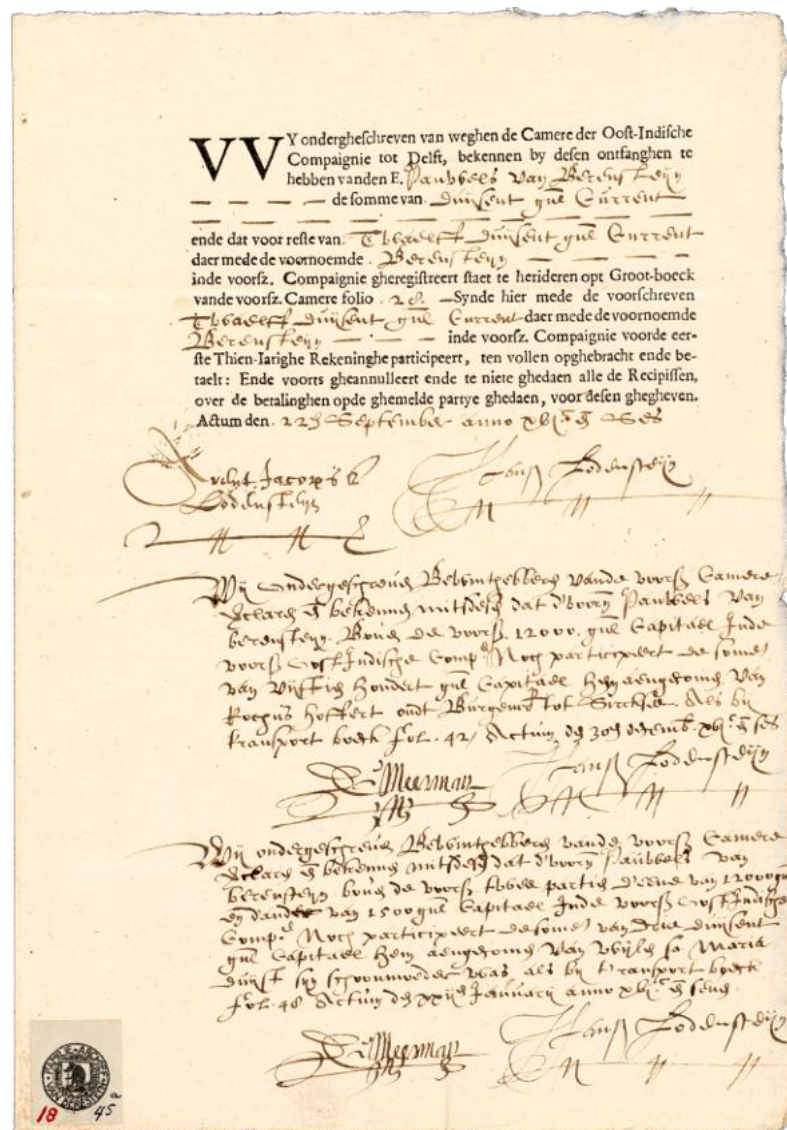 VVY ondergheschreven van weghen de Camere der Oost-Indische
Compaignie tot Delft, bekennen by desen ontfanghen te
hebben vanden E. Pauwels van Berensteyn
de somme van duijsent gul Current
ende dat voor reste van. Twaelff duijsent gul Current
daer mede de voornoemde. Berensteyn
inde voorsz. Compaignie gheregistreert staet te herideren opt Groot-boeck
vande voorsz. Camere folio. 28. Synde hier mede de voorschreven
Twaelff duijsent gul Current daer mede de voornoemde
Berensteyn inde voorsz. Compaignie voorde eer-
ste Thien-Iarighe Rekeninghe participeert, ten vollen opghebracht ende be-
taelt: Ende voorts gheannulleert ende te niete ghedaen alle de Recipissen,
over de betalinghen opde ghemelde partye ghedaen, voor desen ghegheven.
Actum den. September anno ses
Arent Jacopsz
Lodensteyn
Hans Lodensteyn
Wij Ondergeschreven Bewinthebbers vande voorsz Camere
bekennen mitsdesen dat d'voorn Pauwels van
berensteyn. Boven de voorsz. 12000. gul Capitael Inde
voorsz OostIndische Comp Noch participeert de somme
van vijftien hondert gul Capitael hem aengecomen van
Rochus Hoffert oudt Burgemr tot Als by
transport boeck fol. 42. Actum den 30 decemb. ses
Meerman
Hans Lodensteyn
Wij ondergeschreven Bewinthebbers vande voorsz Camere
bekennen mitsdesen dat d'voorn Pauwels van
berensteyn boven de voorsz twee partien d'eene van 12000 gul
van 1500 gul Capitael Inde voorsz OostIndische
Comp Noch participeert de somme van drie duijsent
gul Capitael hem aengecomen van Maria
duijst syn schoonmoeder was als by transport boeck
fol. 48 Actum den Januarij anno seven
Meerman
Hans Lodensteyn
FAMILIE-ARCHIEF
18 45 a